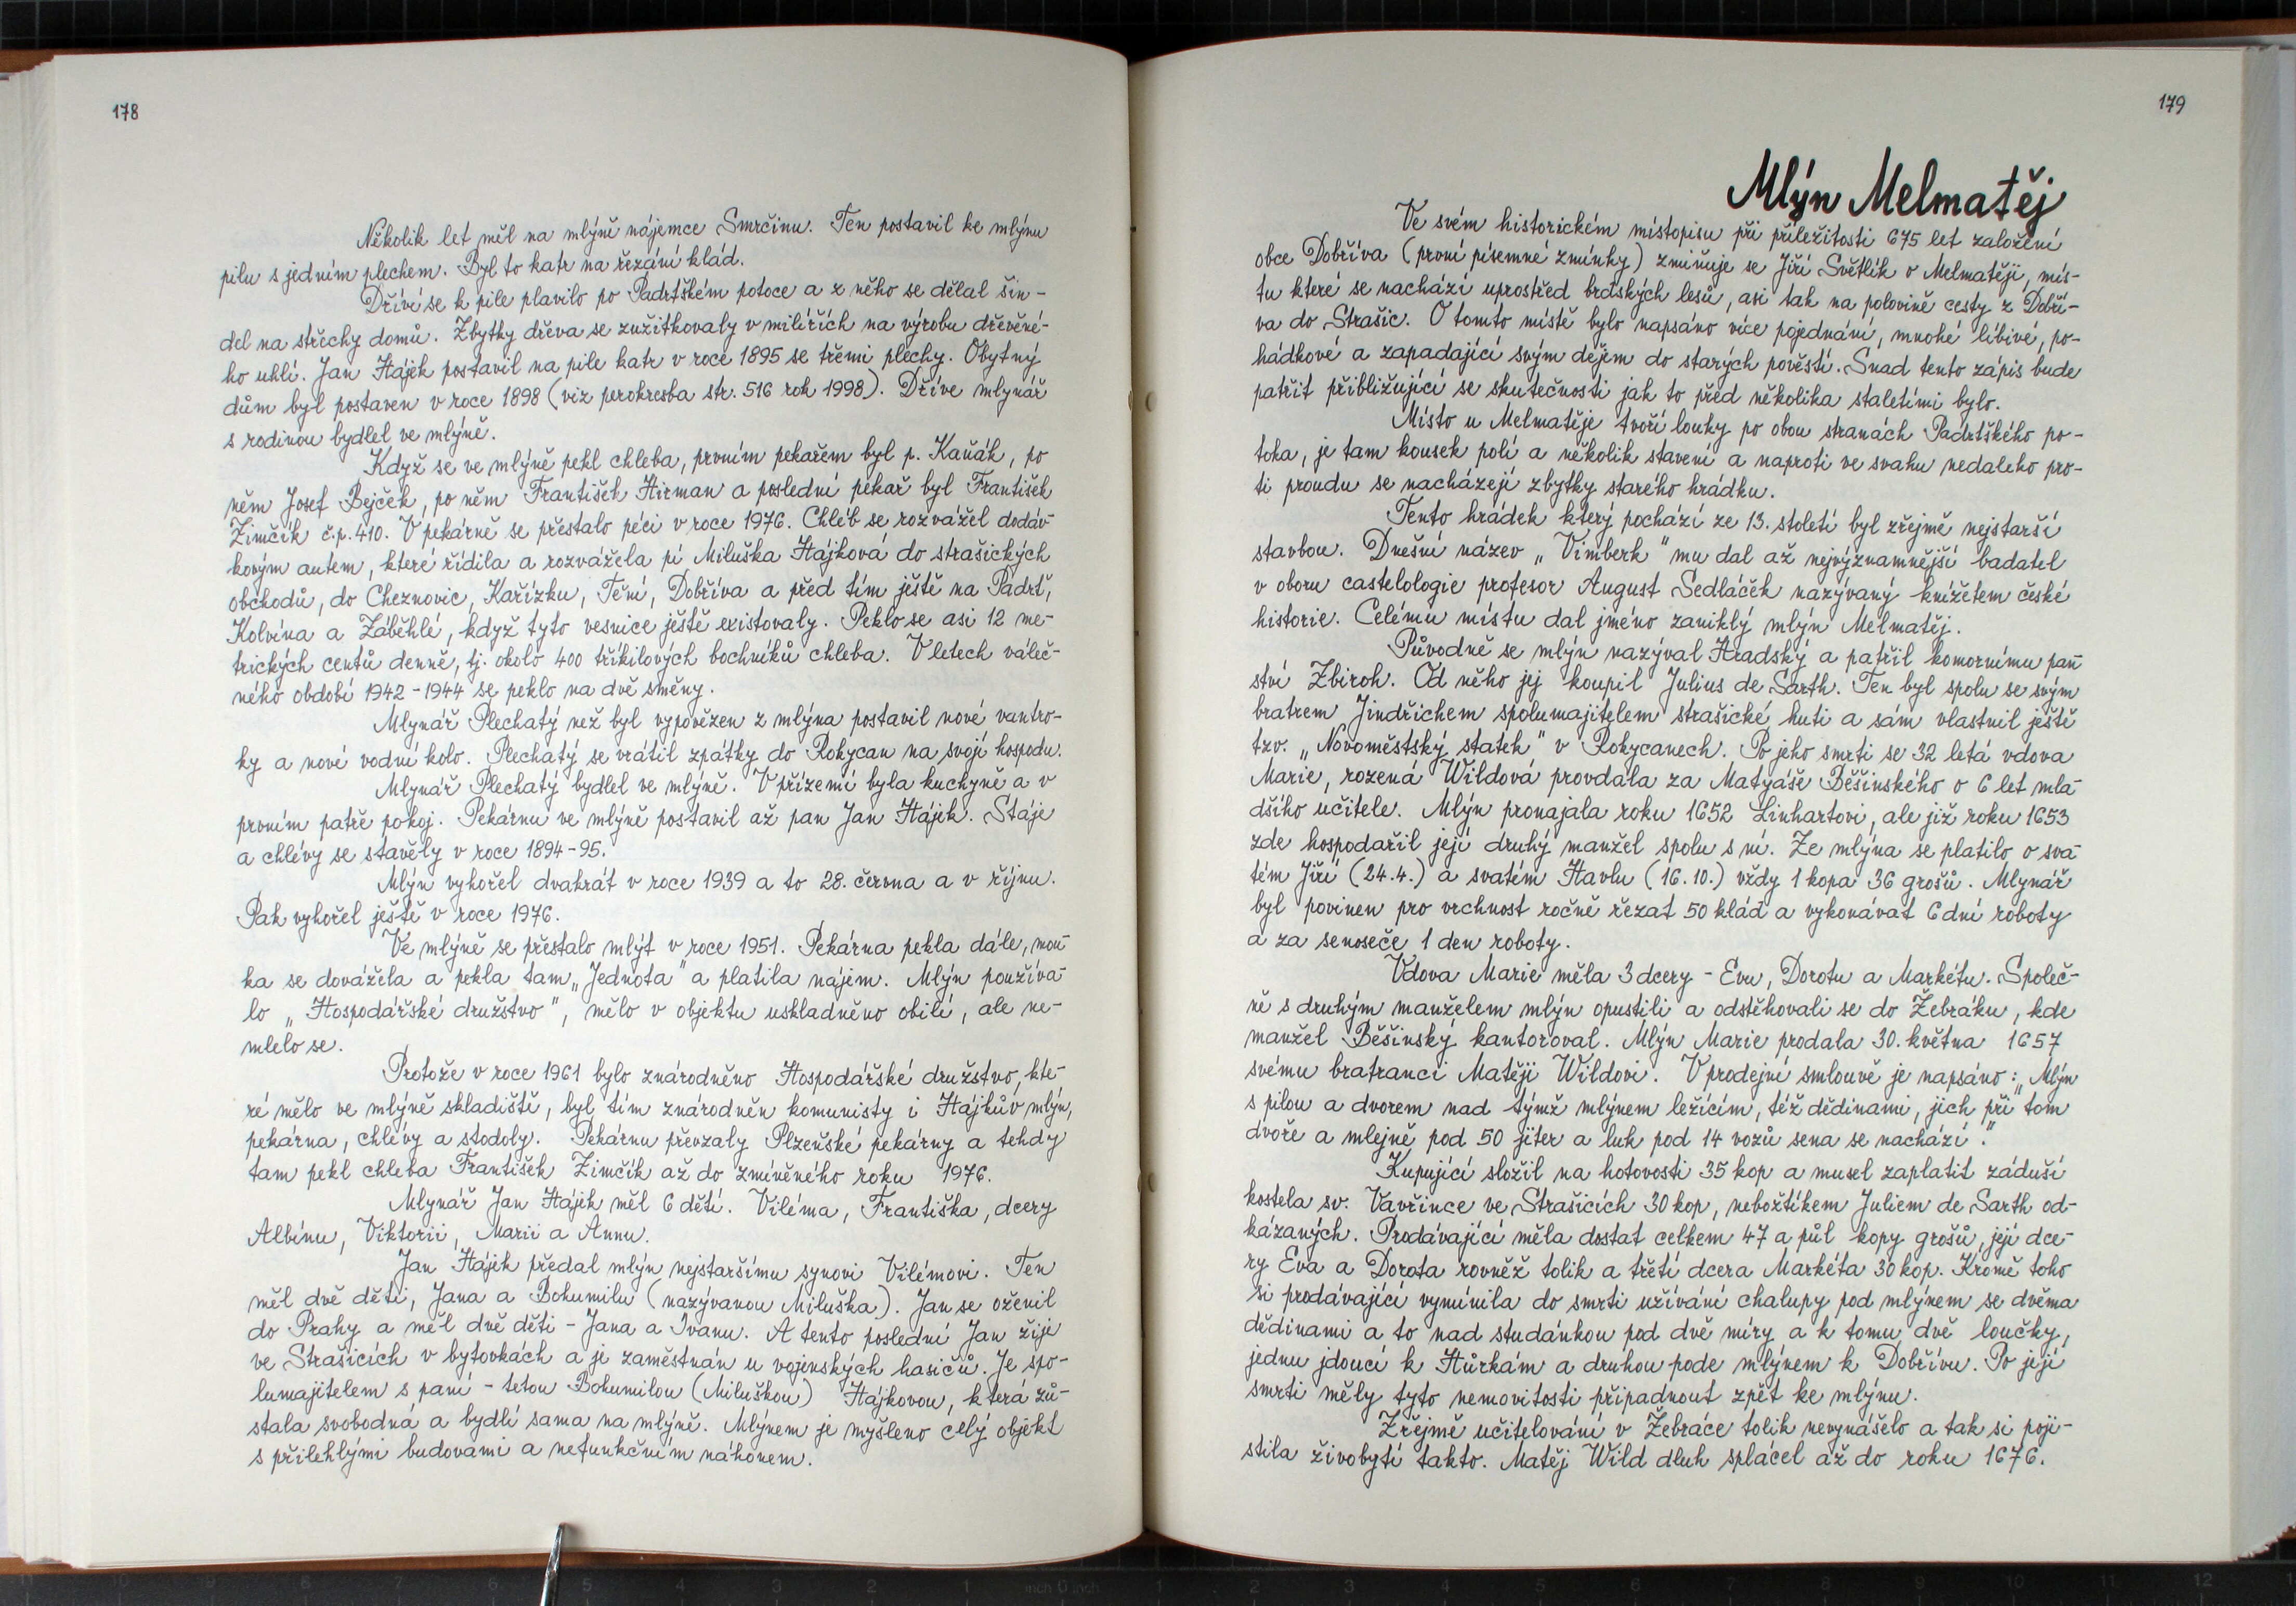 178
Několik let měl na mlýně nájemce Smrčinu. Ten postavil ke mlýnu
pilu s jedním plechem. Byl to katr na řezání klád.
Dříví se k pile plavilo po Padrtském potoce a z něho se dělal šin-
del na střechy domů. Zbytky dřeva se zužitkovaly v milířích na výrobu dřevěné-
ho uhlí. Jan Hájek postavil na pile katr v roce 1895 se třemi plechy. Obytný
dům byl postaven v roce 1898 (viz perokresba str. 516 rok 1998). Dříve mlynář
s rodinou bydlel ve mlýně.
Když se ve mlýně pekl chleba, prvním pekařem byl p. Kaňák, po
něm Josef Bejček, po něm František Hirman a poslední pekař byl František
Zimčík č.p. 410. V pekárně se přestalo péci v roce 1976. Chléb se rozvážel dodáv-
kovým autem, které řídila a rozvážela pí Miluška Hájková do strašických
obchodů, do Cheznovic, Kařízku, Tění, Dobříva a před tím ještě na Padrť,
Kolvína a Záběhlé, když tyto vesnice ještě existovaly. Peklo se asi 12 me-
trických centů denně, tj. okolo 400 tříkilových bochníků chleba. V letech váleč-
ného období 1942-1944 se peklo na dvě směny.
Mlynář Plechatý než byl vypovězen z mlýna postavil nové vantro-
ky a nové vodní kolo. Plechatý se vrátil zpátky do Rokycan na svojí hospodu.
Mlynář Plechatý bydlel ve mlýně. V přízemí byla kuchyně a v
prvním patře pokoj. Pekárnu ve mlýně postavil až pan Jan Hájek. Stáje
a chlévy se stavěly v roce 1894-95.
Mlýn vyhořel dvakrát v roce 1939 a to 28. června a v říjnu.
Pak vyhořel ještě v roce 1976.
Ve mlýně se přestalo mlýt v roce 1951. Pekárna pekla dále, mou-
ka se dovážela a pekla tam „Jednota" a platila nájem. Mlýn používa-
lo „Hospodářské družstvo", mělo v objektu uskladněno obilí, ale ne-
mlelo se.
Protože v roce 1961 bylo znárodněno Hospodářské družstvo, kte-
ré mělo ve mlýně skladiště, byl tím znárodněn komunisty i Hájkův mlýn,
pekárna, chlévy a stodoly. Pekárnu převzaly Plzeňské pekárny a tehdy
tam pekl chleba František Zimčík až do zmíněného roku 1976.
Mlynář Jan Hájek měl 6 dětí. Viléma, Františka, dcery
Albínu, Viktorii, Marii a Annu.
Jan Hájek předal mlýn nejstaršímu synovi Vilémovi. Ten
měl dvě děti, Jana a Bohumilu (nazývanou Miluška). Jan se oženil
do Prahy a měl dvě děti - Jana a Ivanu. A tento poslední Jan žije
ve Strašicích v bytovkách a je zaměstnán u vojenských hasičů. Je spo-
lumajitelem s paní - tetou Bohumilou (Miluškou) Hájkovou, která zů-
stala svobodná a bydlí sama na mlýně. Mlýnem je myšleno celý objekt
s přilehlými budovami a nefunkčním náhonem.
179
Mlýn Melmatěj
Ve svém historickém místopisu při příležitosti 675 let založení
obce Dobříva (první písemné zmínky) zmiňuje se Jiří Světlík o Melmatěji, mís-
tu které se nachází uprostřed brdských lesů, asi tak na polovině cesty z Dobří-
va do Strašic. O tomto místě bylo napsáno více pojednání, mnohé líbivé, po-
hádkové a zapadající svým dějem do starých pověstí. Snad tento zápis bude
patřit přibližující se skutečnosti jak to před několika staletími bylo.
Místo u Melmatěje tvoří louky po obou stranách Padrtského po-
toka, je tam kousek polí a několik stavení a naproti ve svahu nedaleko pro-
ti proudu se nacházejí zbytky starého hrádku.
Tento hrádek který pochází ze 13. století byl zřejmě nejstarší
stavbou. Dnešní název „Vimberk" mu dal až nejvýznamnější badatel
v oboru castelologie profesor August Sedláček nazývaný knížetem české
historie. Celému místu dal jméno zaniklý mlýn Melmatěj.
Původně se mlýn nazýval Hradský a patřil komornímu pan-
ství Zbiroh. Od něho jej koupil Julius de Sarth. Ten byl spolu se svým
bratrem Jindřichem spolumajitelem strašické huti a sám vlastnil ještě
tzv. „Novoměstský statek" v Rokycanech. Po jeho smrti se 32 letá vdova
Marie, rozená Wildová provdala za Matyáše Běšinského o 6 let mla-
dšího učitele. Mlýn pronajala roku 1652 Linhartovi, ale již roku 1653
zde hospodařil její druhý manžel spolu s ní. Ze mlýna se platilo o sva-
tém Jiří (24.4.) a svatém Havlu (16.10.) vždy 1 kopa 36 grošů. Mlynář
byl povinen pro vrchnost ročně řezat 50 klád a vykonávat 6 dní roboty
a za senoseče 1 den roboty.
Vdova Marie měla 3 dcery - Evu, Dorotu a Markétu. Společ-
ně s druhým manželem mlýn opustili a odstěhovali se do Žebráku, kde
manžel Běšinský kantoroval. Mlýn Marie prodala 30. května 1657
svému bratranci Matěji Wildovi. V prodejní smlouvě je napsáno: „Mlýn
s pilou a dvorem nad týmž mlýnem ležícím, též dědinami, jich při tom
dvoře a mlejně pod 50 jiter a luk pod 14 vozů sena se nachází."
Kupující složil na hotovosti 35 kop a musel zaplatit záduší
kostela sv. Vavřince ve Strašicích 30 kop, nebožtíkem Juliem de Sarth od-
kázaných. Prodávající měla dostat celkem 47 a půl kopy grošů, její dce-
ry Eva a Dorota rovněž tolik a třetí dcera Markéta 30 kop. Kromě toho
si prodávající vymínila do smrti užívání chalupy pod mlýnem se dvěma
dědinami a to nad studánkou pod dvě míry a k tomu dvě loučky,
jednu jdoucí k Hůrkám a druhou pode mlýnem k Dobřívu. Po její
smrti měly tyto nemovitosti připadnout zpět ke mlýnu.
Zřejmě učitelování v Žebráce tolik nevynášelo a tak si poji-
stila živobytí takto. Matěj Wild dluh splácel až do roku 1676.